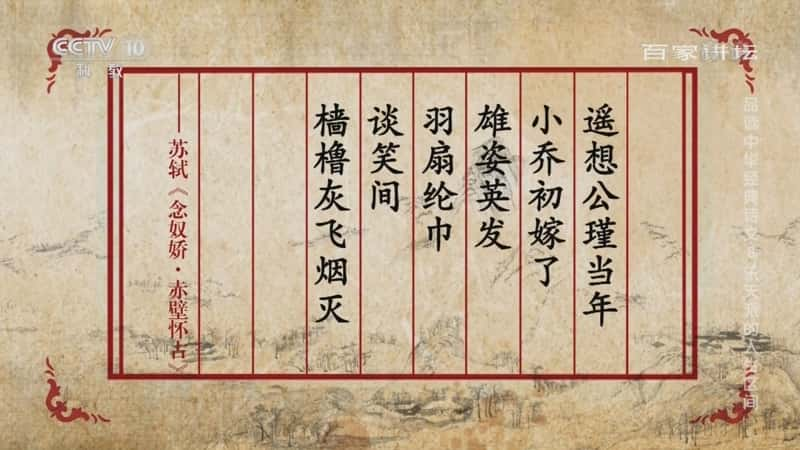 CCTV 10
科教
百家讲坛
遥想公瑾当年
小乔初嫁了
雄姿英发
羽扇纶巾
谈笑间
樯橹灰飞烟灭
——苏轼《念奴娇·赤壁怀古》